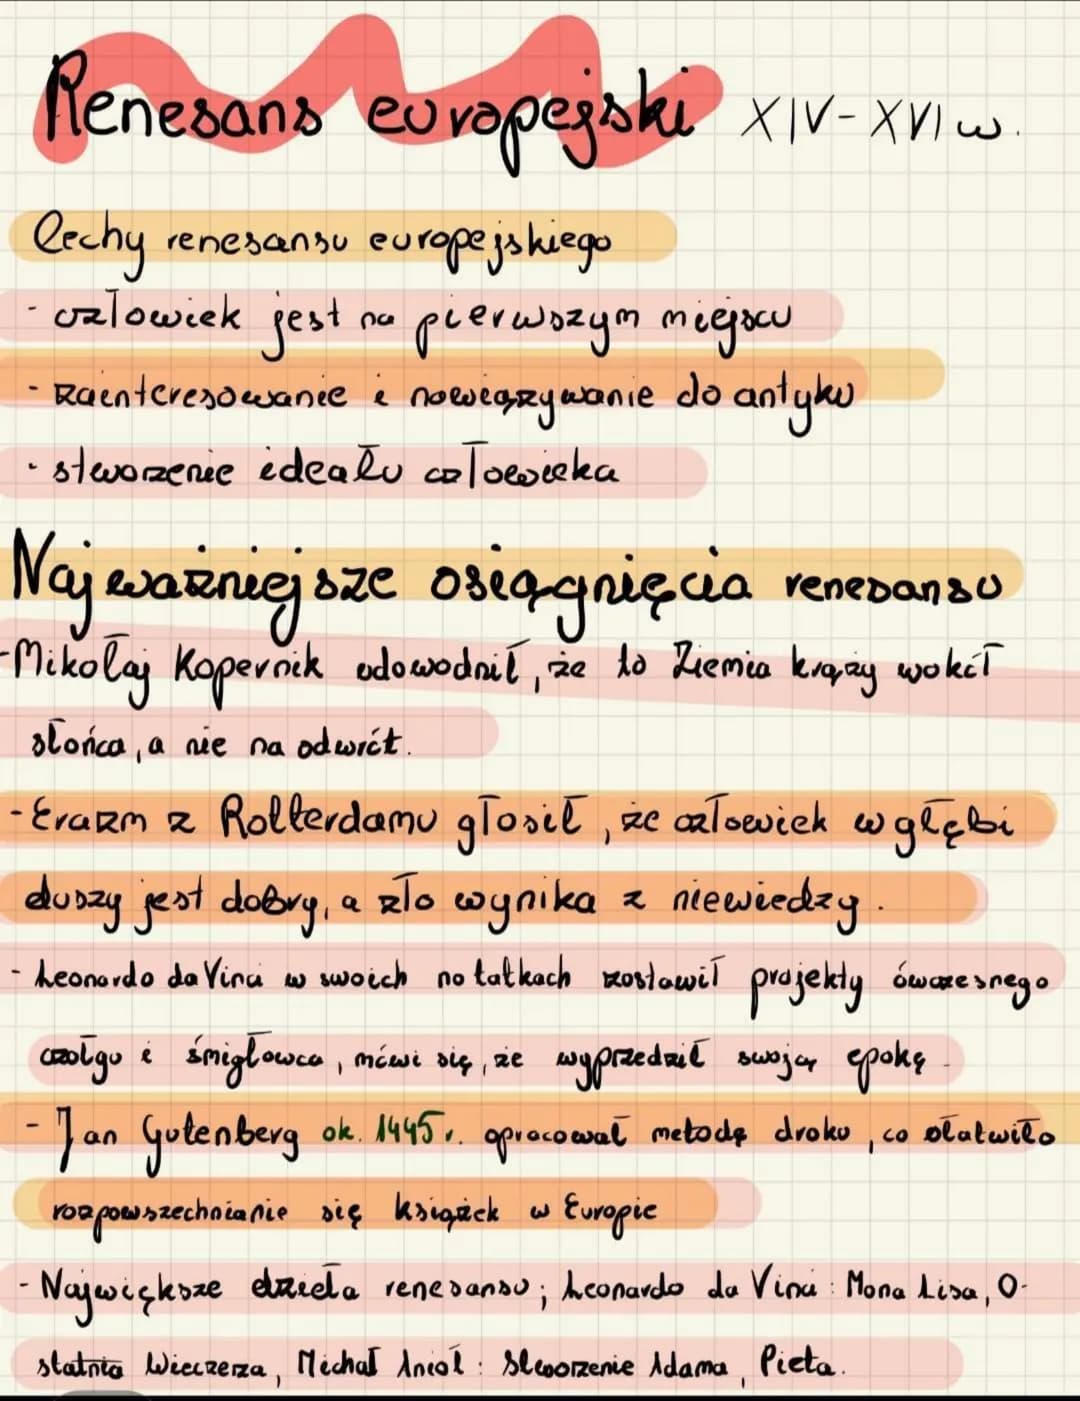 Renesans europejski XIV-XVI w.
Cechy renesansu europejskiego
- człowiek jest na pierwszym miejscu
- zainteresowanie i nawiązywanie do antyku
- stworzenie ideału człowieka
Najważniejsze osiągnięcia renesansu
-Mikołaj Kopernik udowodnił, że to Ziemia krąży wokół
słońca, a nie na odwrót.
-Erazm z Rotterdamu głosił, że człowiek w głębi
duszy jest dobry, a zło wynika z niewiedzy.
- Leonardo da Vinci w swoich notatkach zostawił projekty ówczesnego
czołgu i śmigłowca, mówi się, że wyprzedził swoją epokę.
- Jan Gutenberg ok. 1445 r. opracował metodę druku, co ułatwiło
rozpowszechnianie się książek w Europie
- Największe dzieła renesansu; Leonardo da Vinci: Mona Lisa, O-
statnia Wieczerza, Michał Anioł: Stworzenie Adama, Pieta.